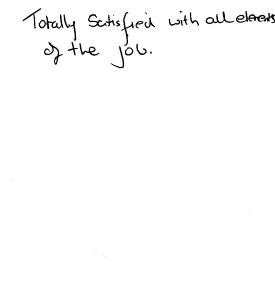 Totally Satisfied with all
of the job.